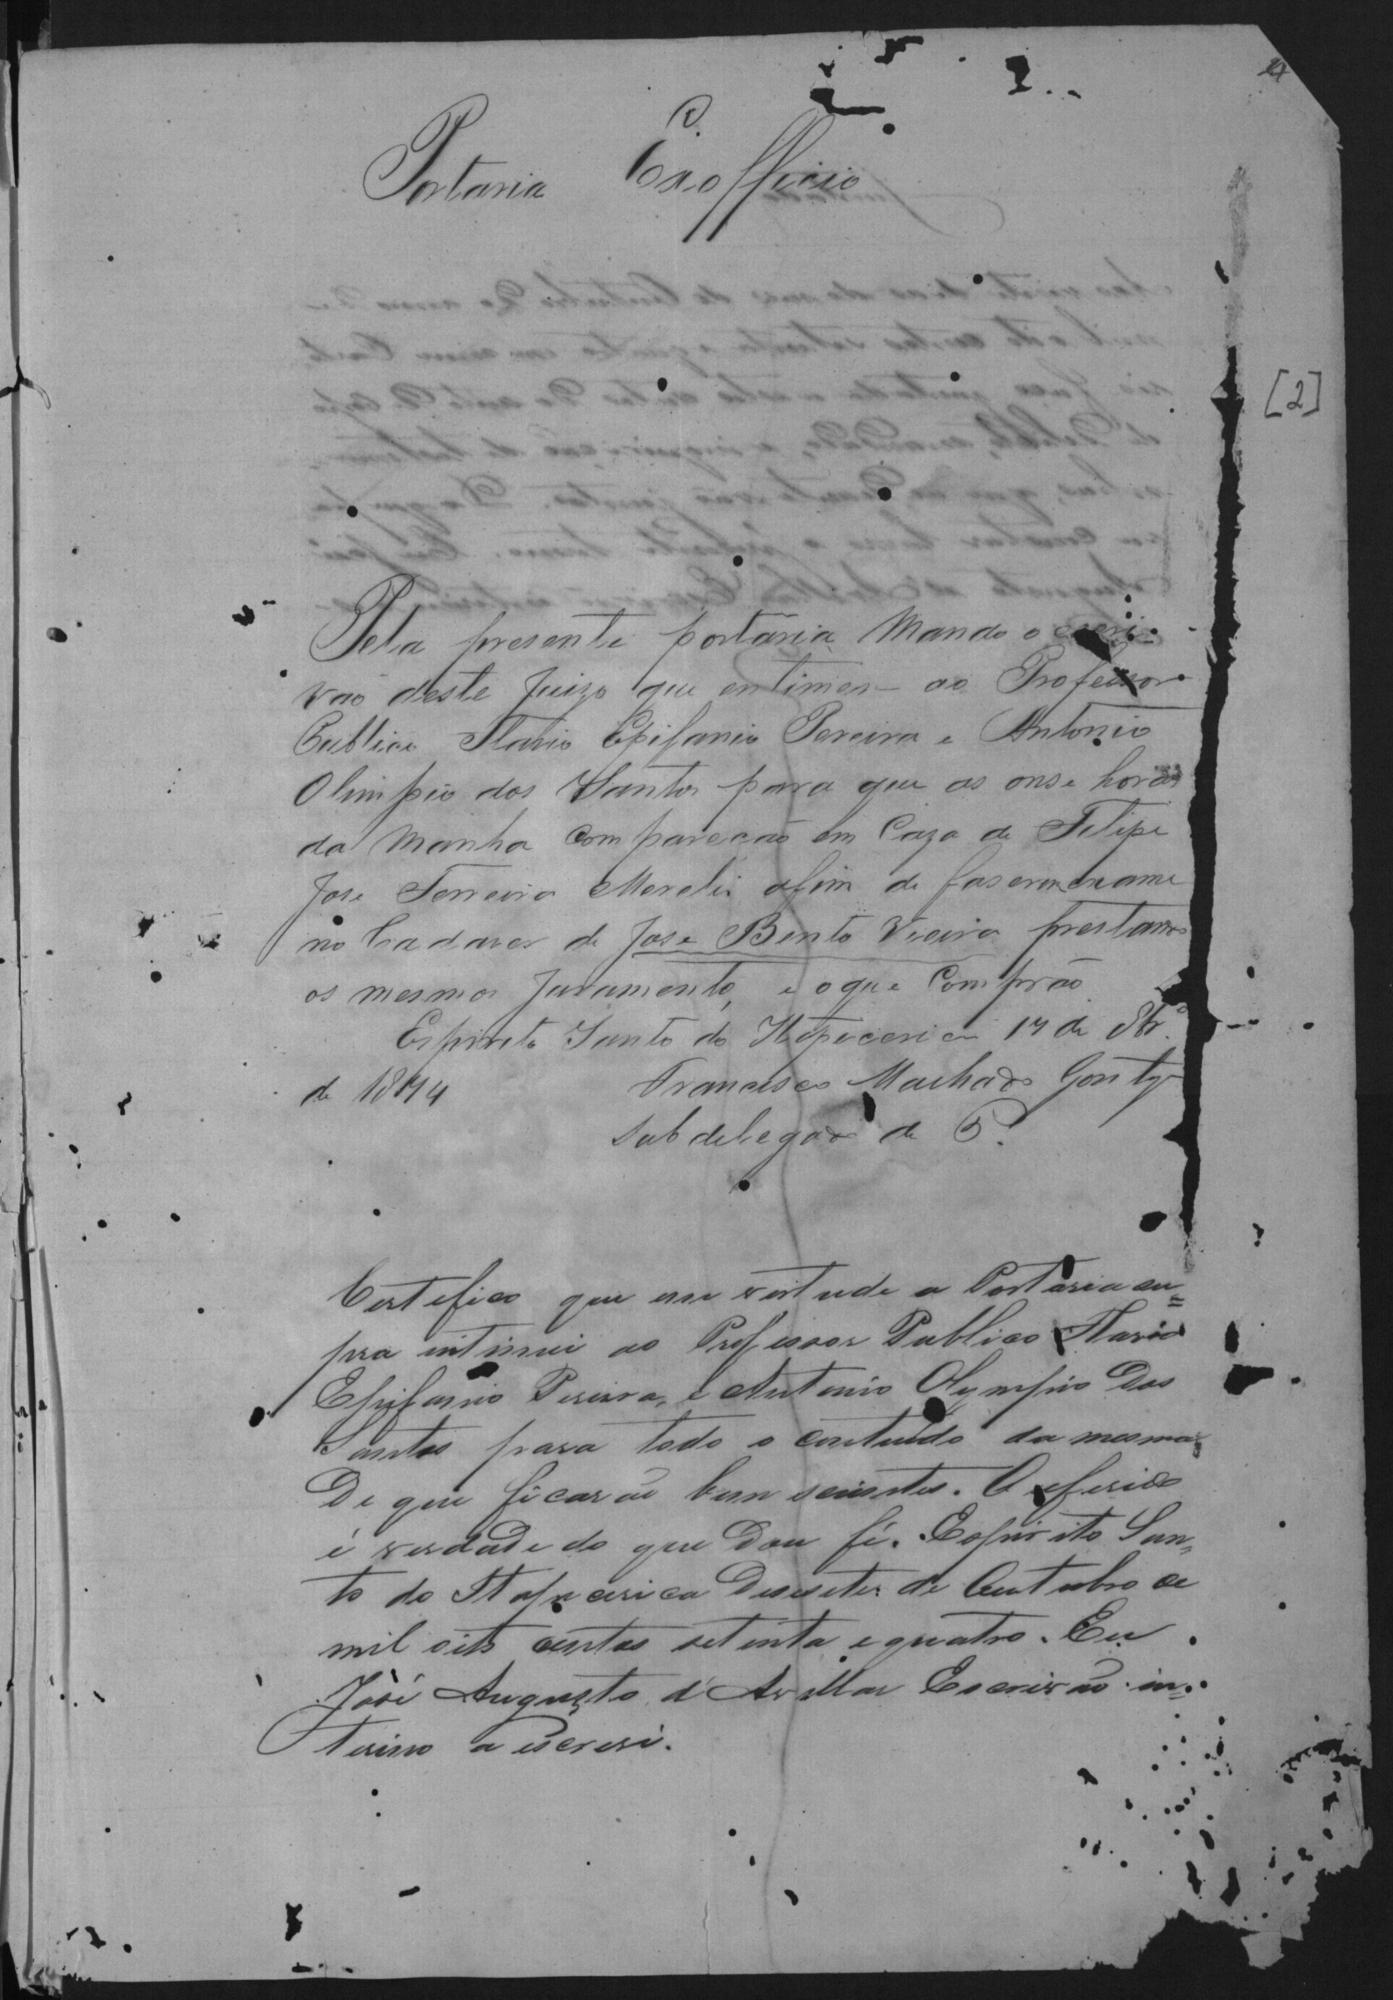 Portaria Exofficio
[2]
Pela presente portaria Mando o escri-
vão deste Juizo que entimem ao Professor
Publico Flavio Epifanio Pereira e Antonio
Olimpio dos Santos para que as onse horas
da Manha Compareção em Caza de Felipe
Jose Ferreira afim de faserem exame
no Cadaver de Jose Bento Vieira prestando
os mesmos Juramento, e o que Comprão
Espirito Santo do Itapecerica 17 de 8br.º
de 1874 Francisco Machado
Subdelegado de P.
Certefico que em vertude a Portaria su=
pra intimei ao Professor Publico Flavio
Epifanio Pereira, e Antonio Olympio dos
Santos para todo o contendo da mesma,
De que ficarão bem scientes. O referido
é verdade do que Dou fé. Espirito San,,
to do Itapecerica Desesete de Outubro de
mil oito centos setenta e quatro. Eu
José Augusto d'Avellar Escrivão in=
terino a escrevi.